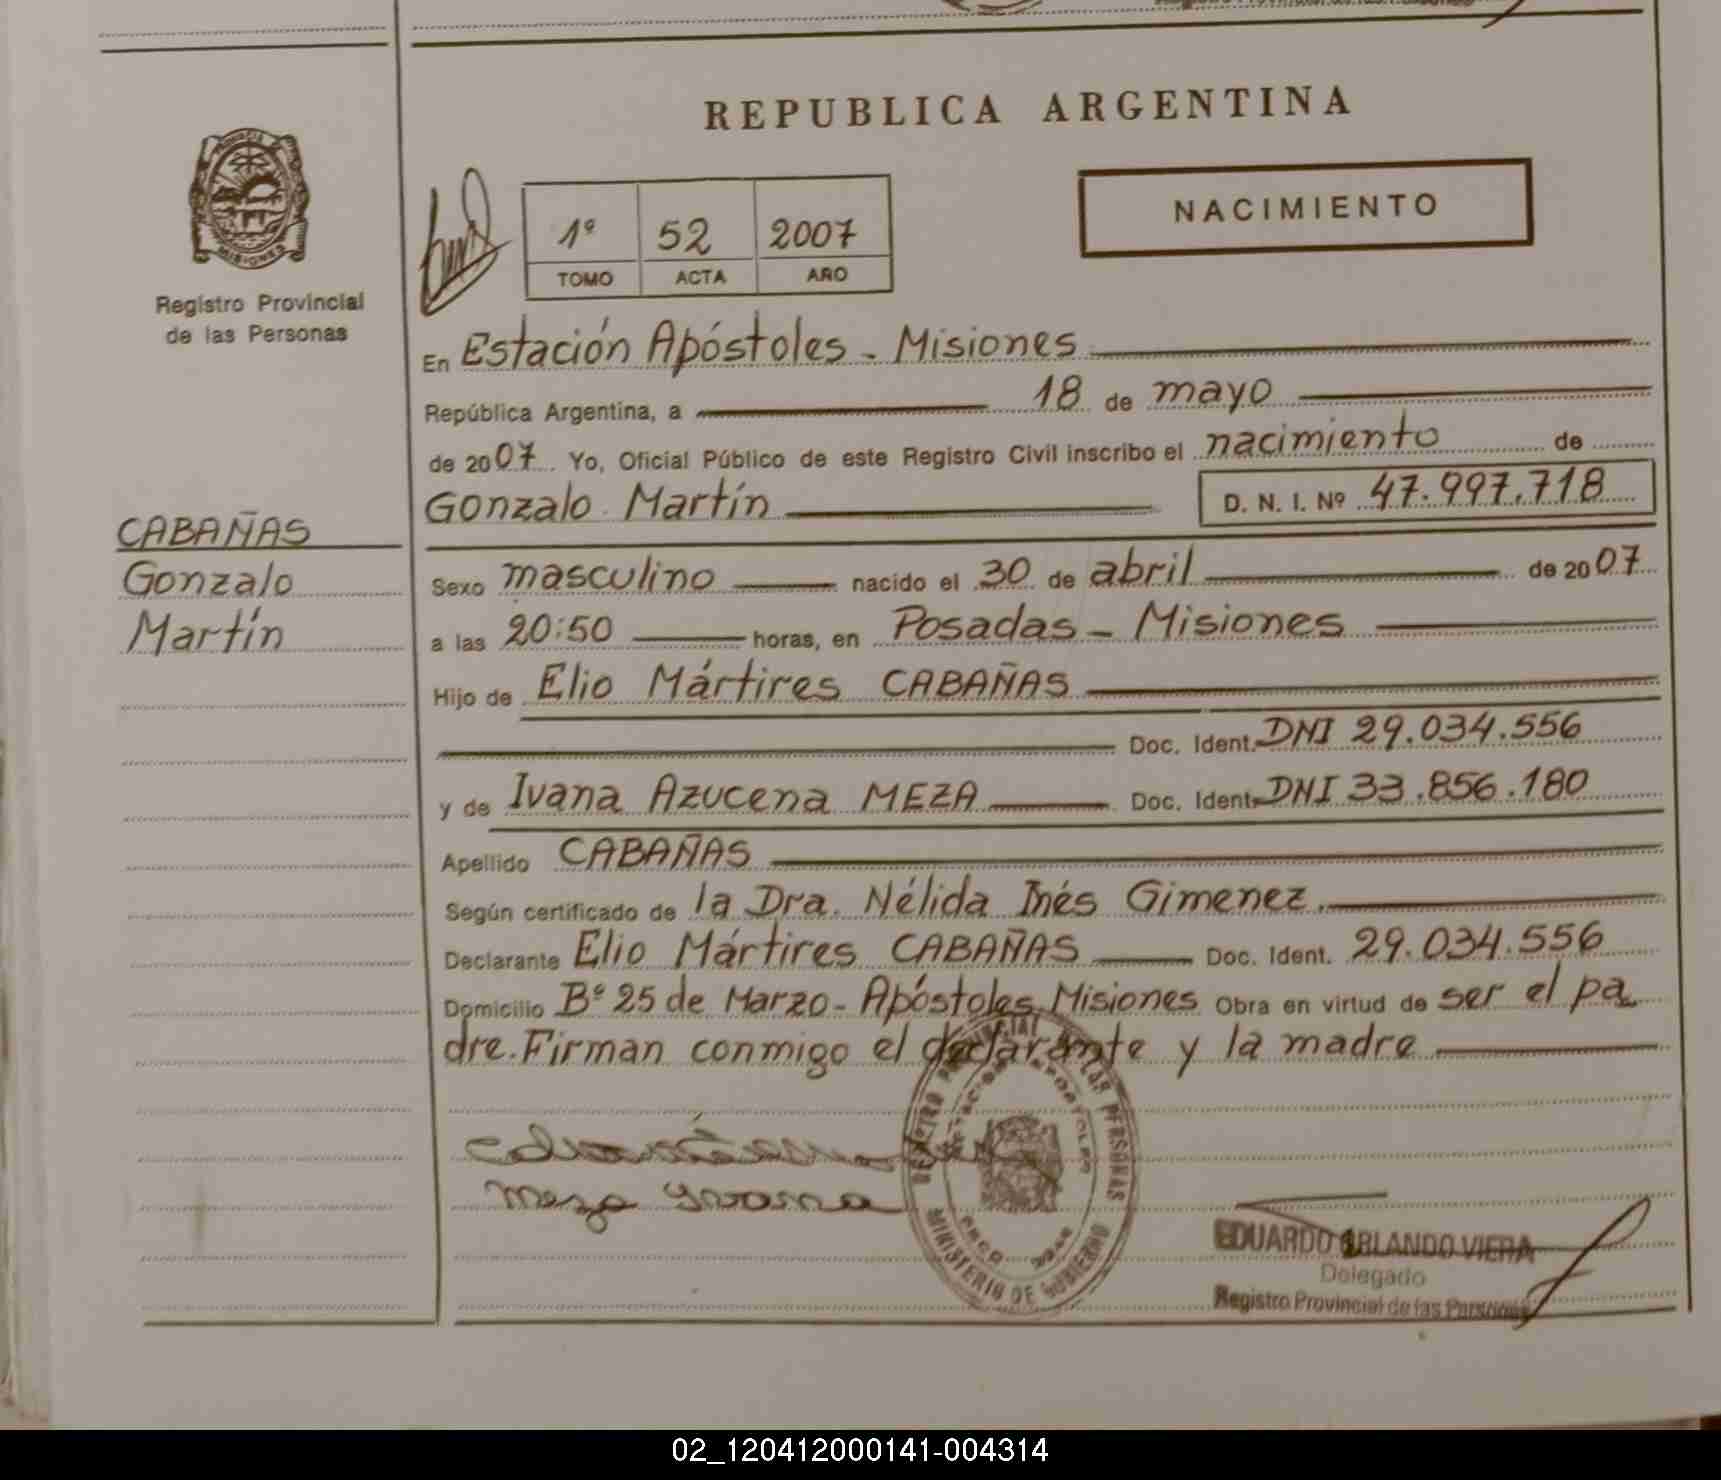 REPUBLICA ARGENTINA
PROVINCIA
MISIONES
Registro Provincial
de las Personas
NACIMIENTO
1º 52 2007
TOMO ACTA AÑO
En Estación Apóstoles - Misiones
República Argentina, a 18 de mayo
de 2007 Yo, Oficial Público de este Registro Civil inscribo el nacimiento de
Gonzalo Martín D. N. I. Nº 47.997.718
CABAÑAS
Gonzalo
Martín
Sexo masculino nacido el 30 de abril de 2007
a las 20:50 horas, en Posadas - Misiones
Hijo de Elio Mártires CABAÑAS
Doc. Ident. DNI 29.034.556
y de Ivana Azucena MEZA Doc. Ident. DNI 33.856.180
Apellido CABAÑAS
Según certificado de la Dra. Nélida Inés Gimenez.
Declarante Elio Mártires CABAÑAS Doc. Ident. 29.034.556
Domicilio Bº 25 de Marzo - Apóstoles Misiones Obra en virtud de ser el pa
dre. Firman conmigo el declarante y la madre
Meza Ivana
REGISTRO PROVINCIAL DE LAS PERSONAS
MINISTERIO DE GOBIERNO
EDUARDO ORLANDO VIERA
Delegado
Registro Provincial de las Personas
02_120412000141-004314